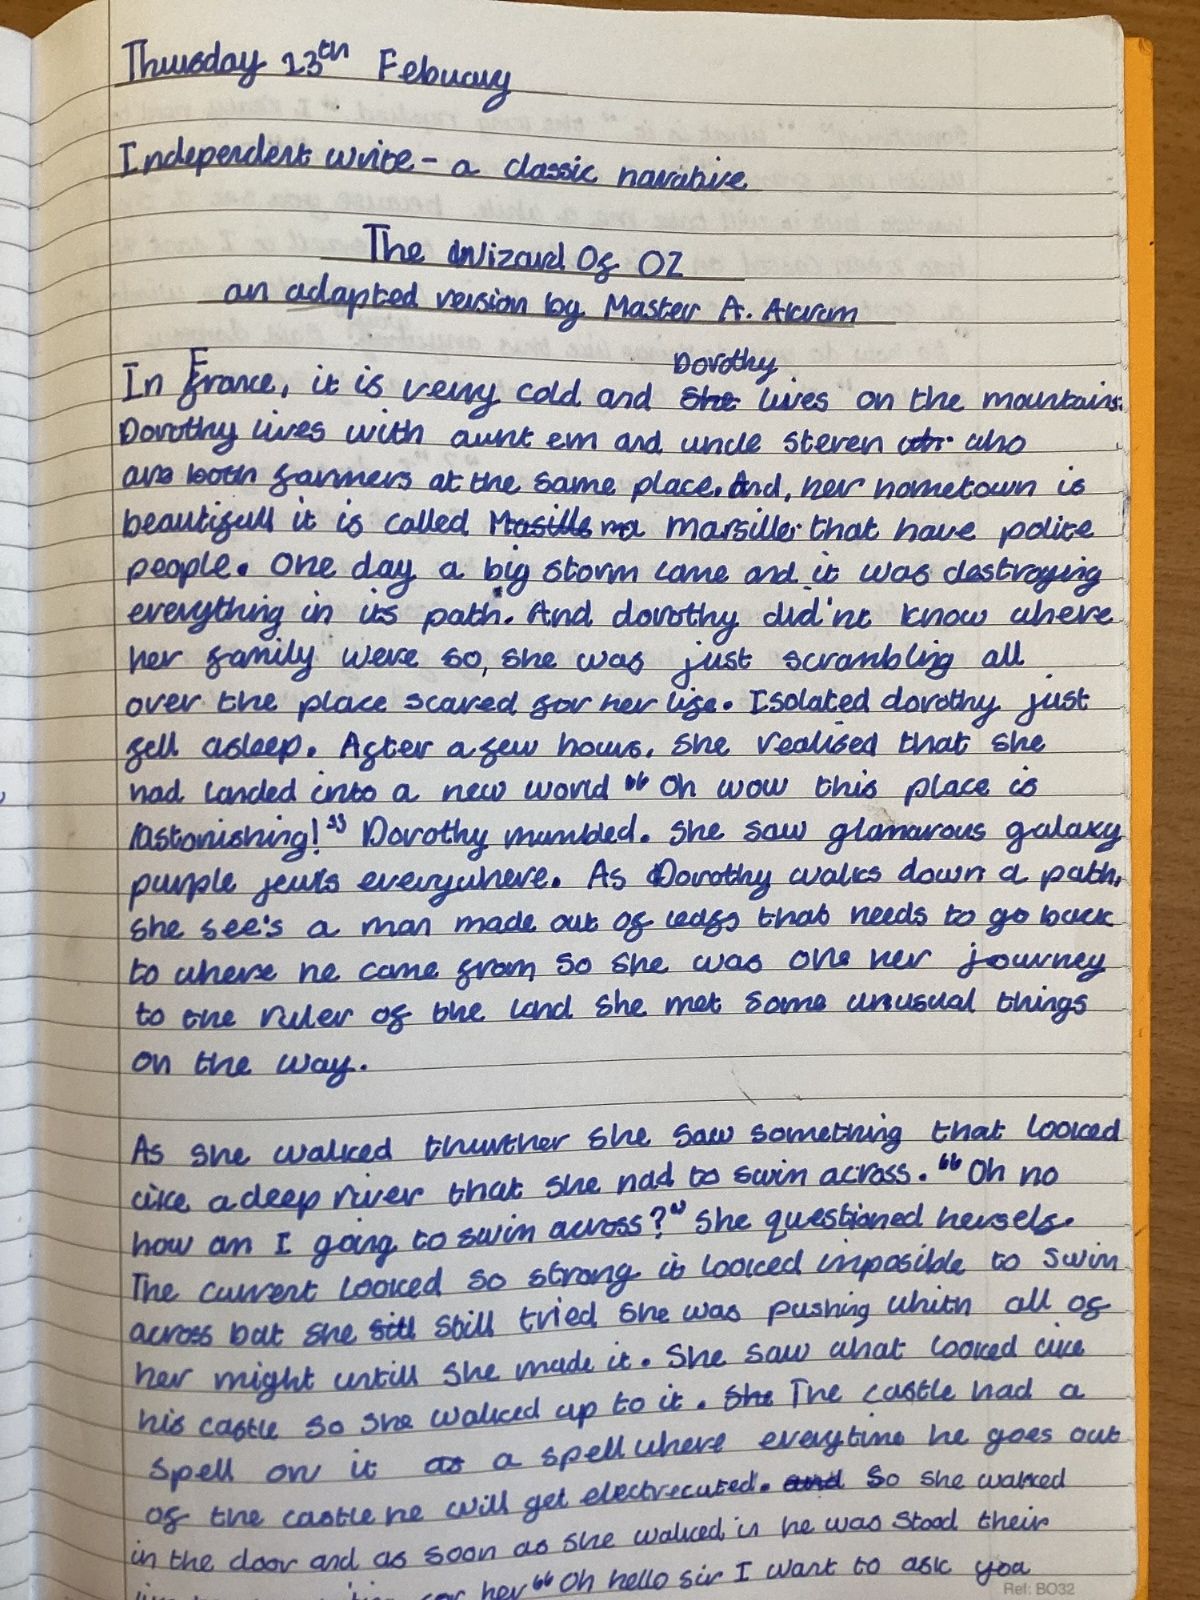 Thursday 13th Febuary
Independent write - a classic narative
The Wizard Of OZ
an adapted version by Master A. Akram
Dorothy
In France, it is verry cold and She lives on the mountains.
Dorothy lives with aunt em and uncle steven who
are both farmers at the same place. And, her hometown is
beautifull it is called Masille Marsille that have polite
people. One day a big storm came and it was destroying
everything in its path. And dorothy did'nt know where
her family were so, she was just scrambling all
over the place scared for her life. Isolated dorothy just
fell asleep. After a few hours, she realised that she
had landed into a new world "Oh wow this place is
Astonishing!" Dorothy mumbled. She saw glamarous galaxy
purple jewls everywhere. As Dorothy walks down a path,
she see's a man made out of leafs that needs to go back
to where he came from, so she was one her journey
to the ruler of the land she met some unusual things
on the way.
As she walked thurther she saw something that looked
like a deep river that she had to swim across. "Oh no
how am I going to swim across?" she questioned herself.
The current looked so strong it looked imposible to swim
across bat she still still tried she was pushing whith all of
her might untill she made it. She saw what looked like
his castle so she walked up to it. She The castle had a
spell on it as a spell where everytime he goes out
of the castle he will get electrecuted. and So she walked
in the door and as soon as she walked in he was stood their
for her "Oh hello sir I want to ask you
Ref: BO32